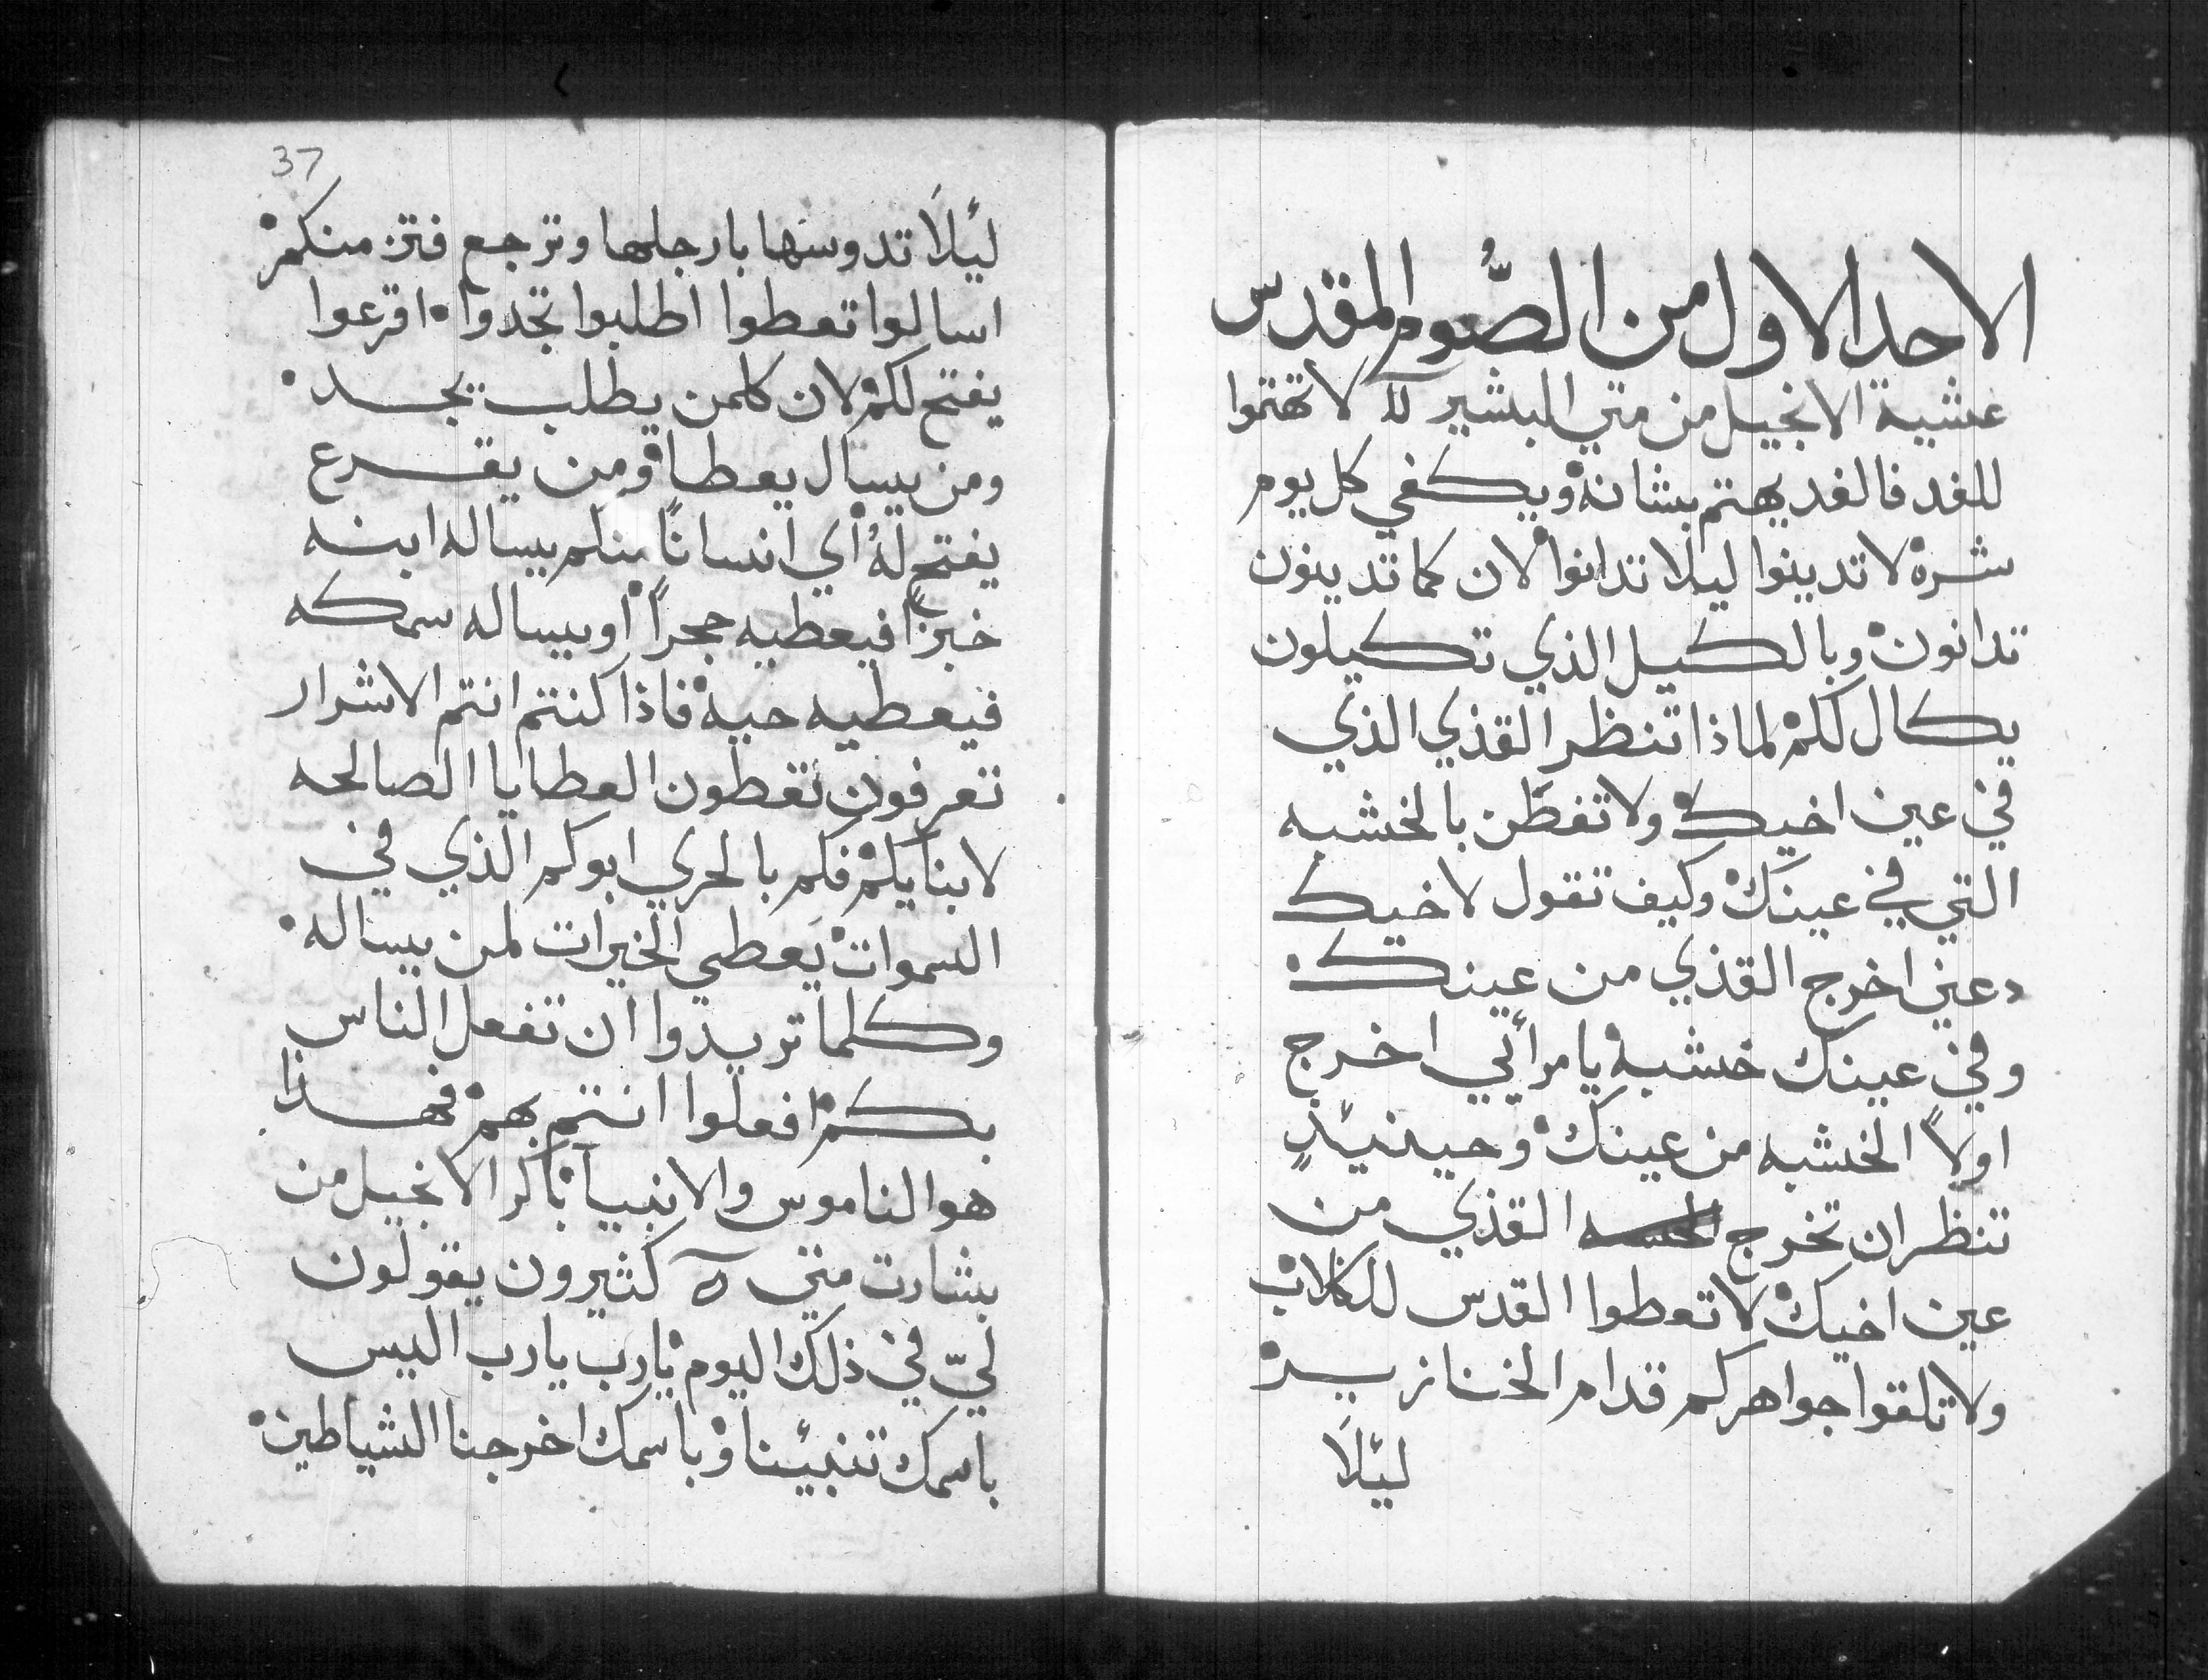 الاحد الاول من الصُّوم المقدس
عشية الانجيل من متي البشير لا تهتموا
للغد فالغد يهتم بشانه ويكفي كل يوم
شره لا تدينوا ليلا تدانوا لان كما تدينون
تدانون وبالكيل الذي تكيلون
يكال لكم لماذا تنظر القذي الذي
في عين اخيك ولا تفطن بالخشبه
التي في عينك وكيف تقول لاخيك
دعني اخرج القذي من عينك
وفي عينك خشبه يا مرأيي اخرج
اولاً الخشبه من عينك وحينيئذٍ
تنظر ان تخرج القذي من
عين اخيك لا تعطوا القدس للكلاب
ولا تلقوا جواهركم قدام الخنازير
ليئلاَ
37
ليئلاَ تدوسها بارجلها وترجع فتز منكم
اسالوا تعطوا اطلبوا تجدوا اقرعوا
يفتح لكم لان كلمن يطلب يجد
ومن يسال يعطا ومن يقرع
يفتح لهُ أي انساناً منكم يساله ابنه
خبزاً فيعطيه حجراً او يساله سمكه
فيعطيه حيه فاذا كنتم انتم الاشرار
تعرفون تعطون العطايا الصالحه
لابنايكم فكم بالحري ابوكم الذي في
السموات يَعطي الخيرات لمن يساله
وكلما تريدوا ان تفعل الناس
بكم افعلوا انتم بهم فهذا
هو الناموس والانبيآ باكر الانجيل من
بشارت متي كثيرون يقولون
ليّ في ذلك اليوم يارب يارب اليس
باسمك تنبيئنا وباسمك اخرجنا الشياطين